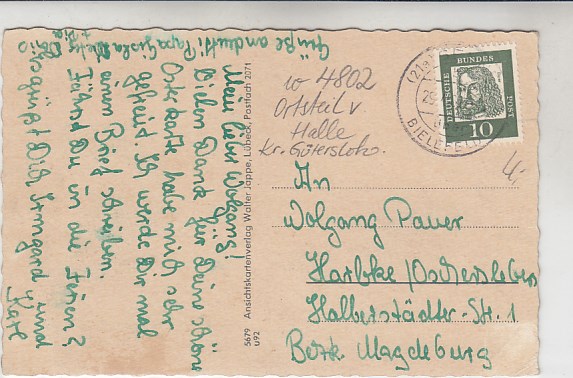 Grüße an deutti Papa Gisela
Mein lieber Wolfgang!
Vielen Dank für Deine schöne
Osterkarte habe mich sehr
gefreut. Ich werde Dir mal
einen Brief schreiben.
Fährst Du in die Ferien?
Es grüßt Dich Irmgard und
5679 Ansichtskartenverlag Walter Jappe, Lübeck, Postfach 2071
U92
w 4802
Ortsteil v
Halle
Kr. Gütersloh.
(21a)
BIELEFELD
DEUTSCHE
BUNDES
POST
10
An
Wolfgang Pauer
Harbke/Oschersleben
Halberstädter-Str. 1
Bezk. Magdeburg